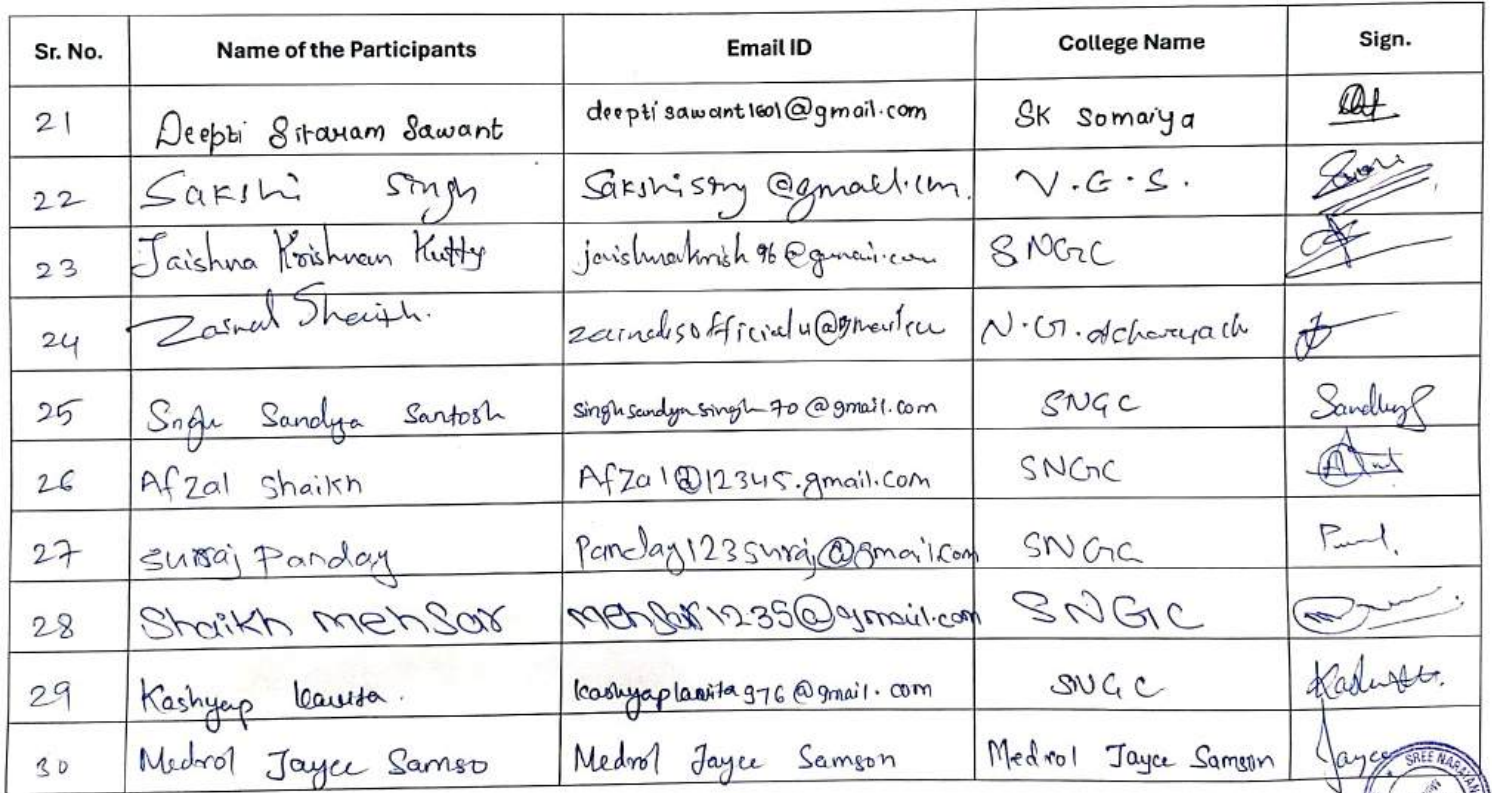 Sr. No. Name of the Participants Email ID College Name Sign.
21 Deepti Sitaram Sawant deeptisawant1601@gmail.com SK Somaiya
22 Sakshi Singh V.G.S.
23 Jaishna Krishnan Kutty jaishnakrish96@gmail.com SNGC
24 Zainal Shaikh. N.G. Acharya
25 Sandya Santosh singhsandyasingh70@gmail.com SNGC Sandhya
26 Afzal Shaikh Afzal@12345.gmail.com SNGC
27 Suraj Panday Panday123suraj@gmail.com SNGC
28 Shaikh mehsar mehsar1235@gmail.com SNGC
29 Kashyap Kavita. SNGC
30 Medrol Jayce Samso Medrol Jayce Samson Medrol Jayce Samson Jayce
SREE NARAYAN